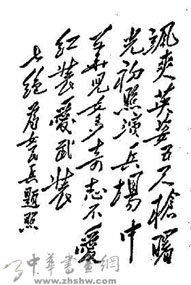 飒爽英姿五尺槍曙
光初照演兵場中
華兒女多奇志不愛
紅装愛武装
七绝 為女民兵題照
中華書画網
www.zhshw.com